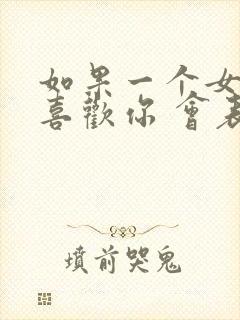 如果一个女
喜歡你會表
墳前哭鬼